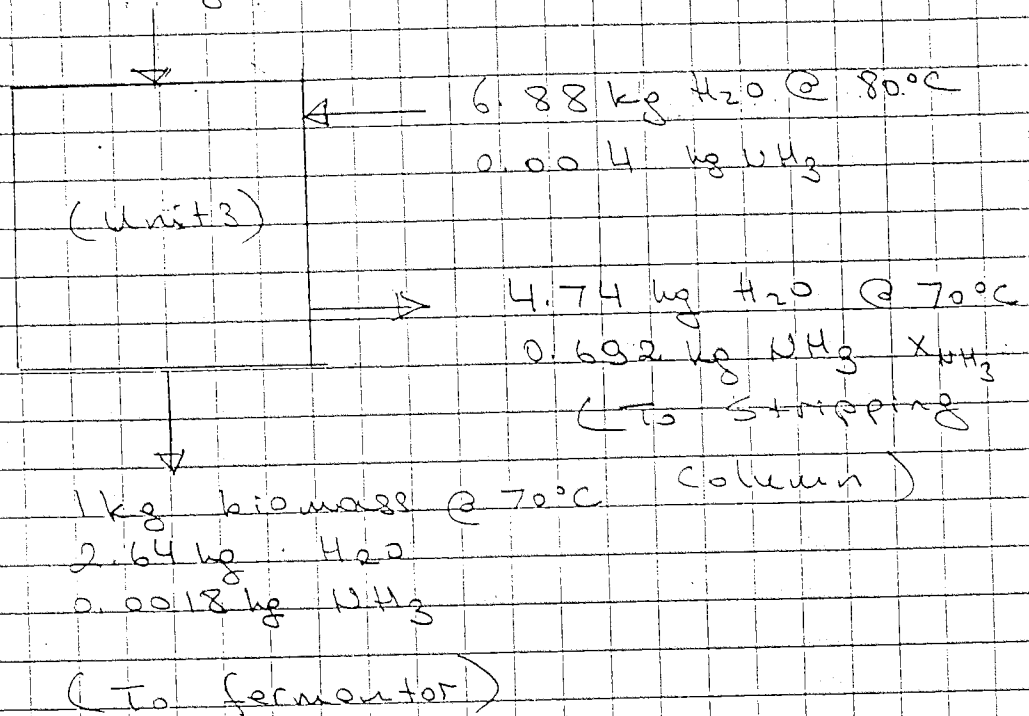 6.88 kg H2O @ 80°C
0.004 kg NH3
(Unit 3)
4.74 kg H2O @ 70°C
0.692 kg NH3 XNH3
(To Stripping
Column)
1kg biomass @ 70°C
2.64 kg H2O
0.0018 kg NH3
(To fermentor)